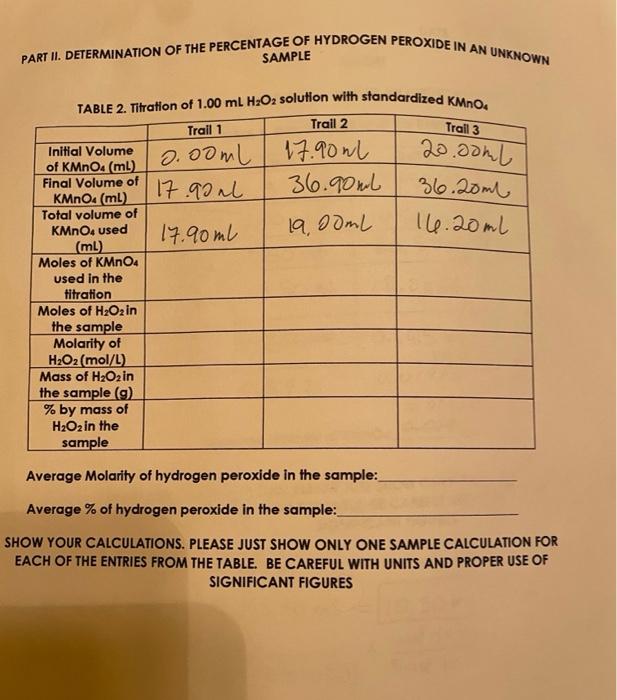 PART II. DETERMINATION OF THE PERCENTAGE OF HYDROGEN PEROXIDE IN AN UNKNOWN
SAMPLE
TABLE 2. Titration of 1.00 mL H₂O₂ solution with standardized KMnO₄
Trail 1 Trail 2 Trail 3
Initial Volume of KMnO₄ (mL) 0.00ml 17.90ml 20.00mL
Final Volume of KMnO₄ (mL) 17.90mL 36.90mL 36.20mL
Total volume of KMnO₄ used (mL) 17.90mL 19.00mL 16.20mL
Moles of KMnO₄ used in the titration
Moles of H₂O₂ in the sample
Molarity of H₂O₂ (mol/L)
Mass of H₂O₂ in the sample (g)
% by mass of H₂O₂ in the sample
Average Molarity of hydrogen peroxide in the sample:
Average % of hydrogen peroxide in the sample:
SHOW YOUR CALCULATIONS. PLEASE JUST SHOW ONLY ONE SAMPLE CALCULATION FOR
EACH OF THE ENTRIES FROM THE TABLE. BE CAREFUL WITH UNITS AND PROPER USE OF
SIGNIFICANT FIGURES